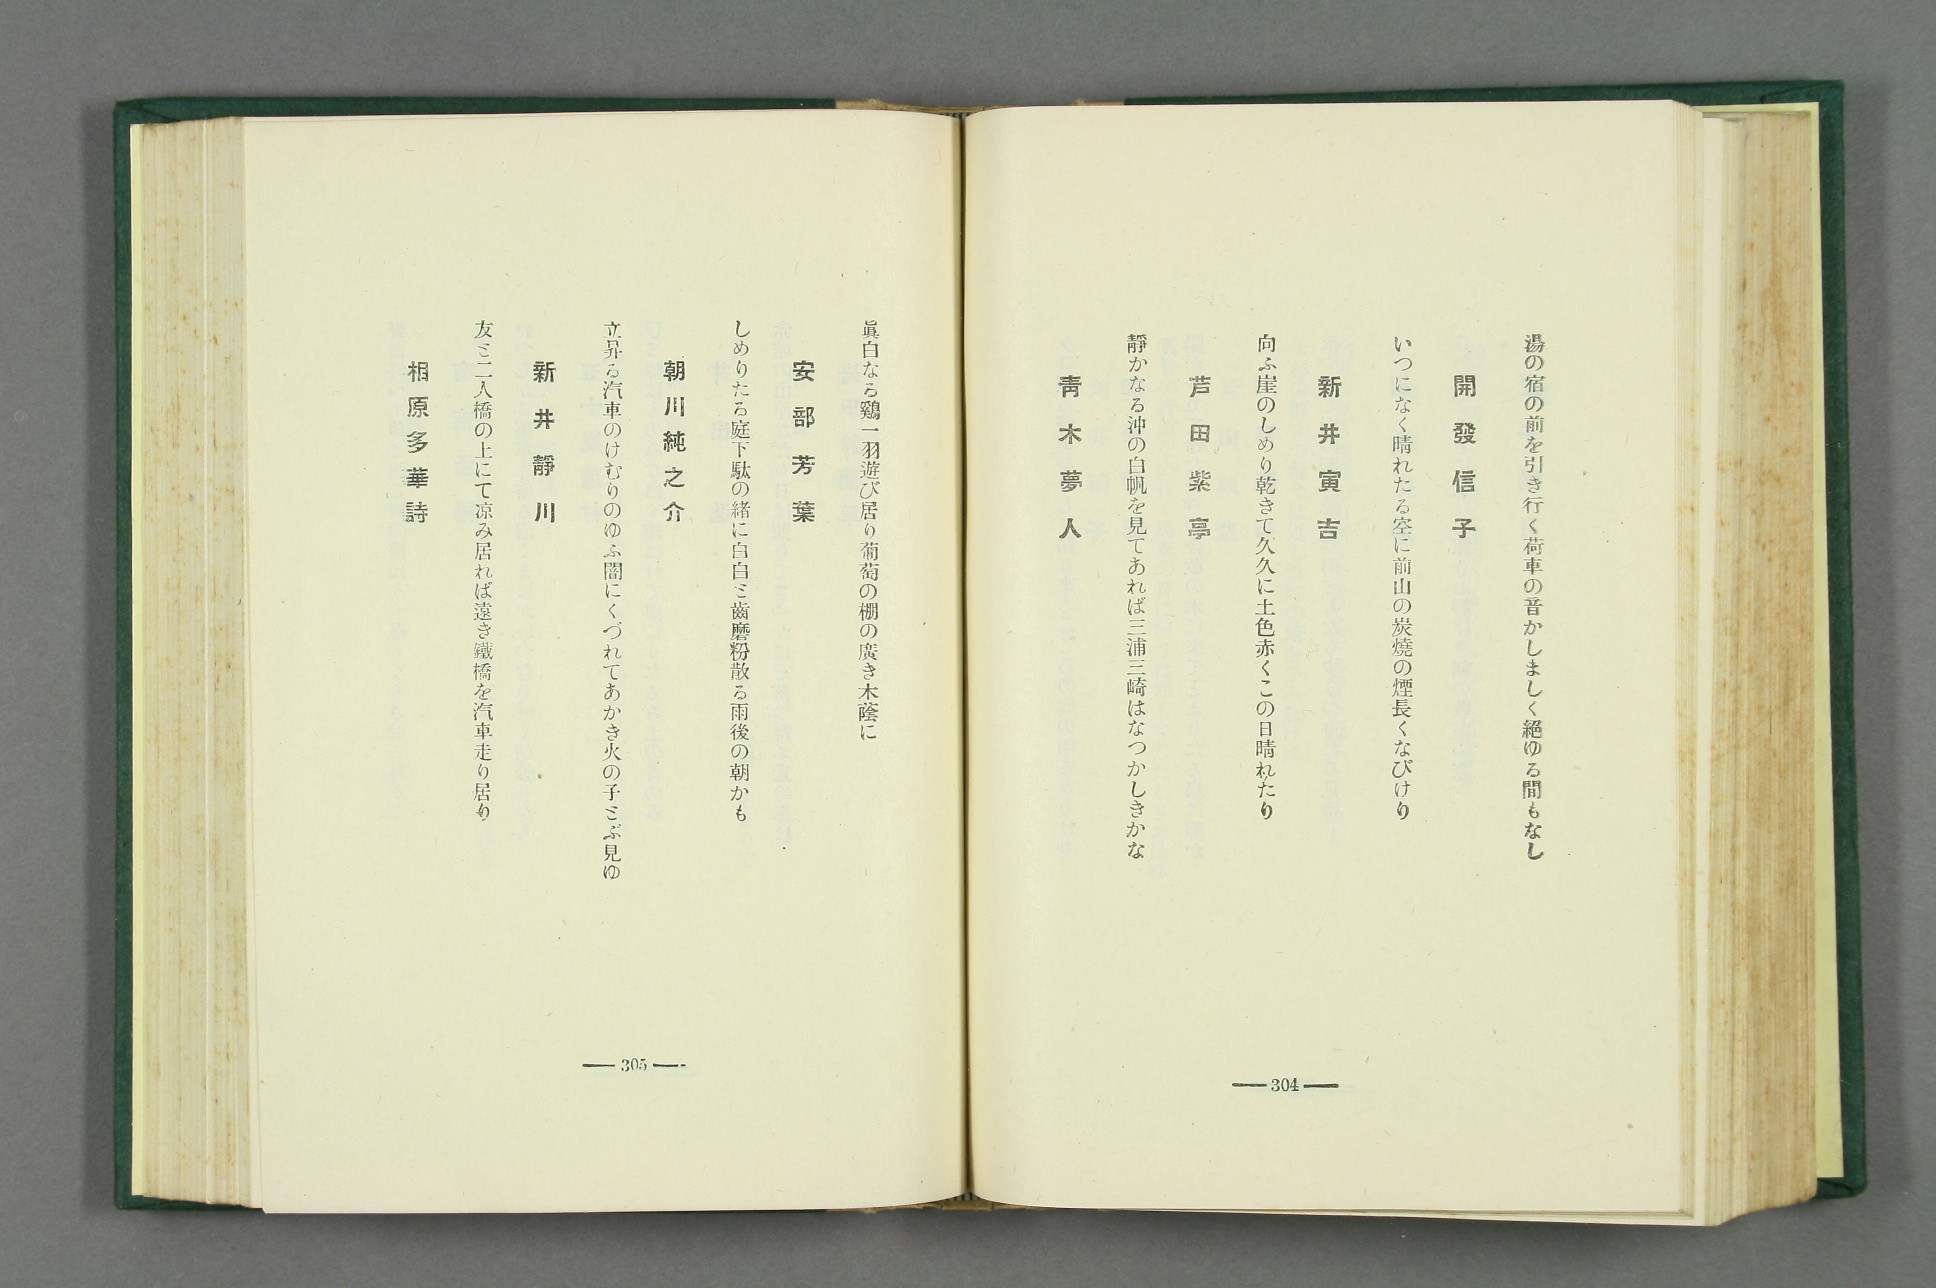 湯の宿の前を引き行く荷車の音かしましく絕ゆる間もなし
開發信子
いつになく晴れたる空に前山の炭燒の煙長くなびけり
新井寅吉
向ふ崖のしめり乾きて久久に土色赤くこの日晴れたり
芦田紫亭
靜かなる沖の白帆を見てあれば三浦三崎はなつかしきかな
靑木夢人
304
眞白なる鷄一羽遊び居り葡萄の棚の廣き木蔭に
安部芳葉
しめりたる庭下駄の緖に白白と齒磨粉散る雨後の朝かも
朝川純之介
立昇る汽車のけむりのゆふ闇にくづれてあかき火の子とぶ見ゆ
新井靜川
友と二人橋の上にて凉み居れば遠き鐵橋を汽車走り居り
相原多華詩
305